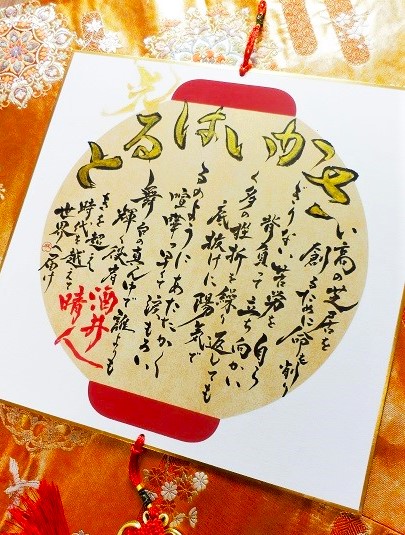 光
さかいはると
い高の芝居を
創るために命を削り
ぎりない苦労を自ら
背負って立ち向かい
く多の挫折を繰り返しても
底抜けに陽気で
るのようにあたたかく
喧嘩っ早くて涙もろい
舞台の真ん中で誰よりも
輝く役者
きを超え
時代を越えて
世界へ届け
酒井
晴人